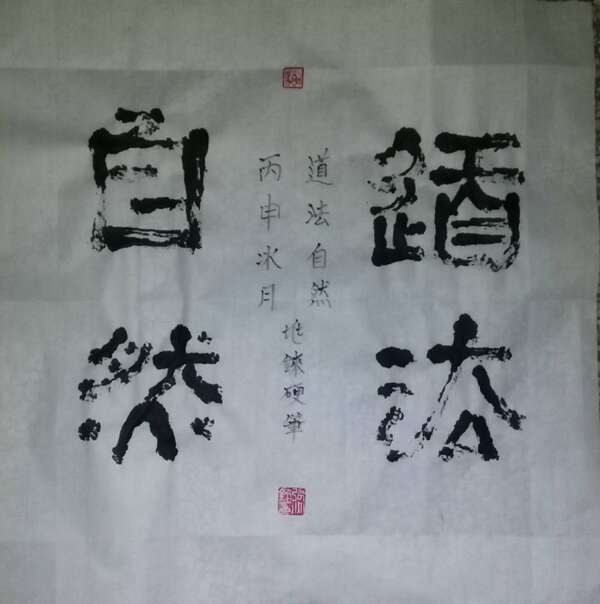 道法
自然
道法自然
丙申冰月
硬筆